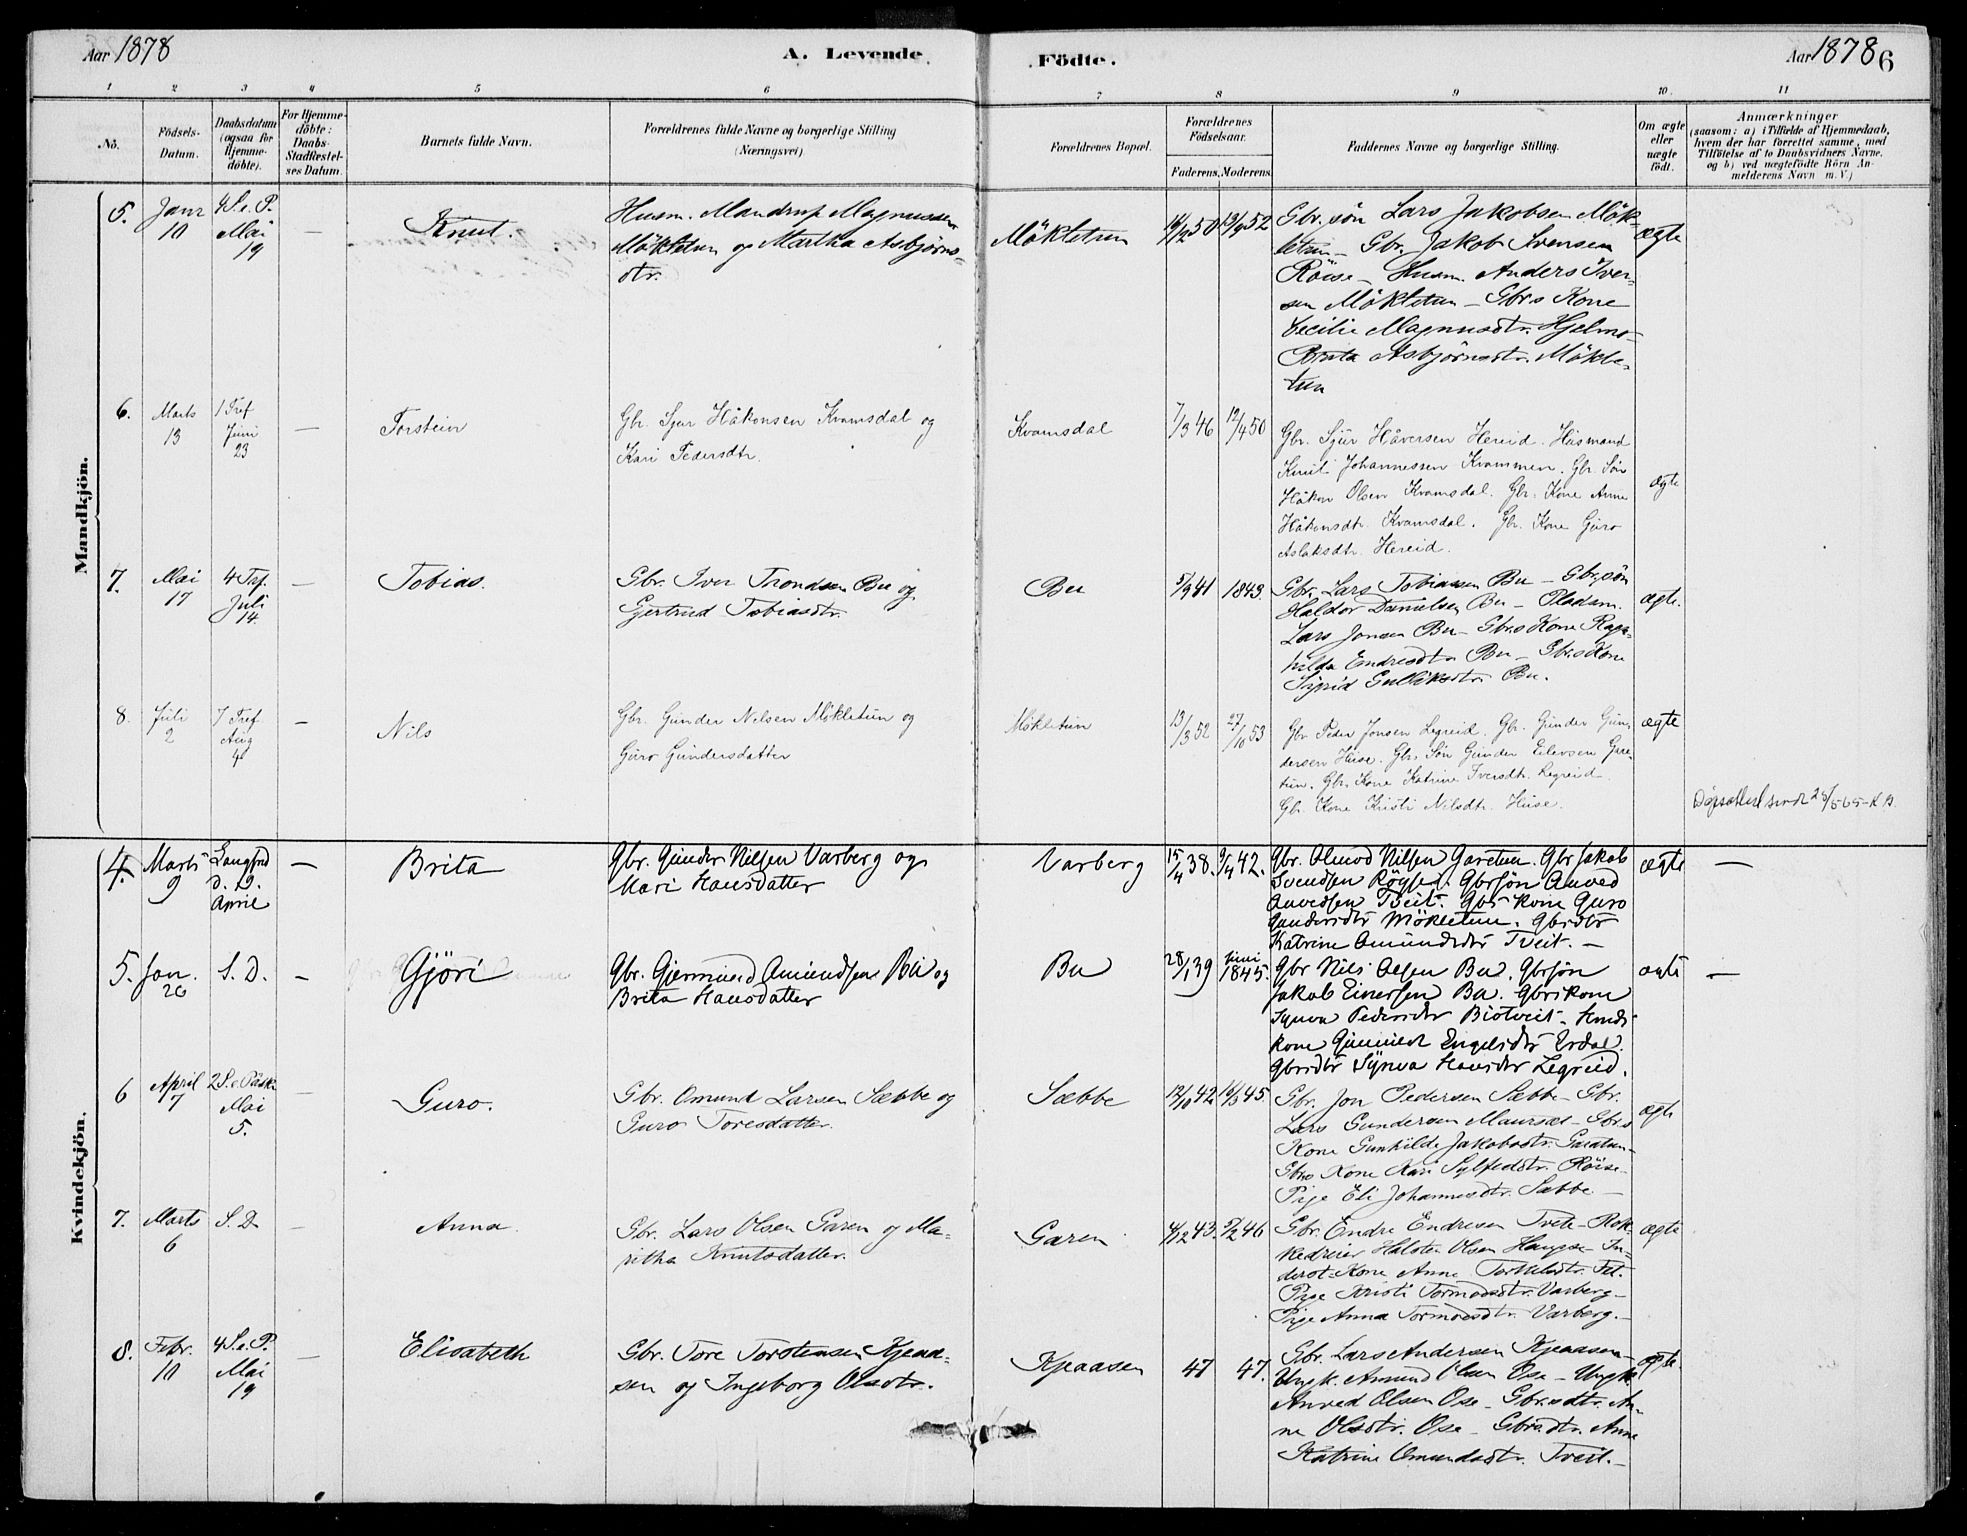 Aar 1878
A. Levende
Födte.
Aar 1878
6
1 2 3 4 5 6 7 8 9 10 11
No.
Födsels-
Datum.
Daabsdatum
(ogsaa for
Hjemme-
döbte).
For Hjemme-
döbte:
Daabs-
Stadfæstel-
ses Datum.
Barnets fulde Navn.
Forældrenes fulde Navne og borgerlige Stilling
(Næringsvei).
Forældrenes Bopæl.
Forældrenes
Födselsaar.
Faderens. Moderens.
Faddernes Navne og borgerlige Stilling.
Om ægte
eller
uægte
födt.
Anmærkninger
(saasom: a) i Tilfælde af Hjemmedaab,
hvem der har forrettet samme, med
Tilföielse af to Daabsvidners Navne,
og b) ved uægtefödte Börn An-
melderens Navn m. V.)
Mandkjön.
5.
Janr
10
4 S. e. P.
Mai
19
—
Knut.
Husm. Mandrup Magnussen
Mökletun og Martha Asbjörns-
dtr.
Mökletun
16/2 50
13/9 52
Gbr. sön Lars Jakobsen Mök-
letun — Gbr. Jakob Svensen
Röise — Husm. Anders Iver-
sen Mökletun — Gbr.s Kone
Cecilie Magnusdtr. Hjelmo —
Brita Asbjörnsdtr. Mökle-
tun
ægte
6.
Marts
13
1 Tref
Juni
23
—
Torstein
Gbr. Sjur Håkonsen Kvamsdal og
Kari Pedersdtr.
Kvamsdal
7/3 46
12/4 50
Gbr. Sjur Håversen Hereid. Husmand
Knut Johannessen Kvammen. Gbr. Sön
Håkon Olsen Kvamsdal. Gbr. Kone Anna
Håkonsdtr. Kvamsdal. Gbr. Kone Guro
Aslaksdtr. Hereid.
ægte
7.
Mai
17
4 Tref.
Juli
14.
—
Tobias.
Gbr. Iver Trondsen Bu og
Gjertrud Tobiasdtr.
Bu
5/9 41
1843.
Gbr. Lars Tobiassen Bu — Gbr.sön
Haldor Danielsen Bu — Pladsm.
Lars Jonsen Bu — Gbr.s Kone Ragn-
hilda Endresdtr. Bu — Gbr.s Kone
Sigrid Gulliksdtr. Bu.
ægte.
8.
Juli
2
7 Tref.
Aug
4
—
Nils
Gbr. Gunder Nilsen Møkletun og
Guro Gundersdatter
Møkletun
13/3 52
27/10 53
Gbr. Peder Jonsen Legreid. Gbr. Gunder Gun-
dersen Huse. Gbr. Sön Gunder Eilevsen Gare-
tun. Gbr. Kone Katrine Iversdtr. Legreid.
Gbr. Kone Kristi Nilsdtr. Huse.
ægte
Kvindekjön.
4.
Marts
9
Langfred
d. 19.
April
—
Brita
Gbr. Gunder Nilsen Varberg og
Mari Hansdatter
Varberg
15/4 38.
9/4 42.
Gbr. Olmod Nilsen Garetun. Gbr Jakob
Svendsen Röyse. Gbrsön Anved
Anvedsen Tveit. Gbs kone Guro
Gundersdtr Mökletun. Gbrdtr
Katrine Amundsdtr Tveit. —
ægte
—
5.
Jan.
26
S. D.
—
Gjöri
Gbr. Gjermund Amundsen Bu og
Brita Hansdatter
Bu
28/1 39
Juni
1845.
Gbr Nils Olsen Bu. Gbrsön
Jakob Einersen Bu. Gbrs kone
Synva Pedersdtr Biotveit. Hmds
kone Gunnild Engelsdtr Erdal.
Gbrsdtr Synva Hansdtr Legreid.
ægte
—
6
April
7
2 S. e Påske
Mai
5.
—
Guro.
Gbr. Omund Larsen Sæbbe og
Guro Toresdatter.
Sæbbe
12/10 42
16/3 45.
Gbr. Jon Pedersen Sæbbe — Gbr.
Lars Gundersen Maursæt — Gbr.s
Kone Gunhilde Jakobsdtr. Garatun —
Gbr.s Kone Kari Sylfestdtr. Röise —
Pige Eli Johannesdtr. Sæbbe. —
ægte
7.
Marts
6
S. D.
—
Anna.
Gbr. Lars Olsen Garen og Ma-
ritha Knutsdatter.
Garen
4/12 43.
5/2 46
Gbr. Endre Endresen Tveit — Rok-
kedreier Halsten Olsen Haugse — In-
derst = Kone Anne Torkelsdtr. Fet.
Pige Kristi Tormodsdtr. Varberg —
Pige Anna Tormodsdtr. Varberg. —
ægte
8.
Febr.
10
4 S. e. P.
Mai
19
—
Elisabeth
Gbr. Tore Torstensen Kjeaa-
sen og Ingeborg Olsdtr.
Kjeaasen
47
47.
Gbr. Lars Andersen Kjeaasen —
Ungk. Amund Olsen Ose — Ungk.
Anved Olsen Ose — Gbr.sdtr. An-
ne Olsdtr. Ose — Gbr.sdtr. Anne
Katrine Omundsdtr. Tveit. —
ægte.